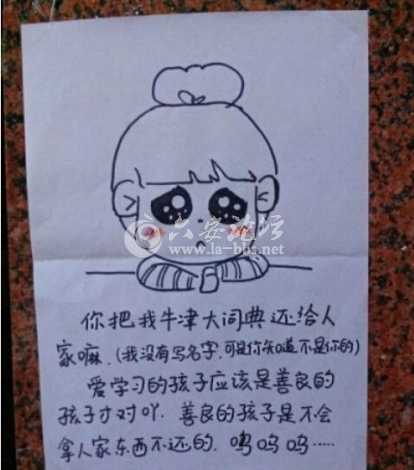 六安论坛
www.la-bbs.net
你把我牛津大词典还给人
家嘛.(我没有写名字,可是你知道不是你的)
爱学习的孩子应该是善良的
孩子才对吖.善良的孩子是不会
拿人家东西不还的.呜呜呜……